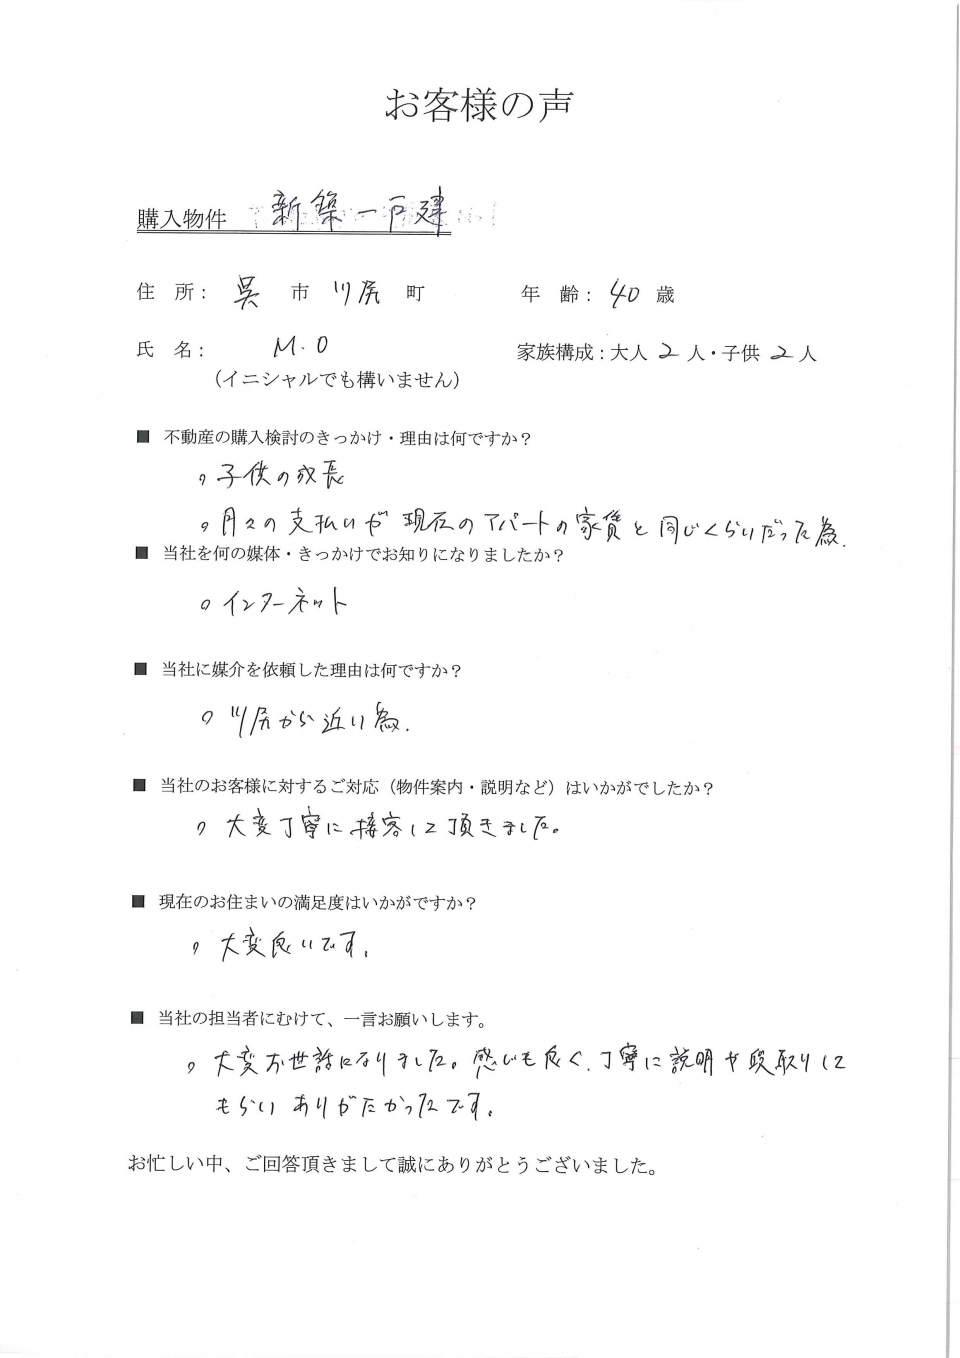 お客様の声
購入物件 新築一戸建
住 所： 呉 市 川尻 町 年 齢： 40 歳
氏 名： M.O 家族構成：大人 2 人・子供 2 人
（イニシャルでも構いません）
■ 不動産の購入検討のきっかけ・理由は何ですか？
。子供の成長
。月々の支払いが現在のアパートの家賃と同じくらいだった為.
■ 当社を何の媒体・きっかけでお知りになりましたか？
。インターネット
■ 当社に媒介を依頼した理由は何ですか？
。川尻から近い為.
■ 当社のお客様に対するご対応（物件案内・説明など）はいかがでしたか？
。大変丁寧に接客して頂きました。
■ 現在のお住まいの満足度はいかがですか？
。大変良いです.
■ 当社の担当者にむけて、一言お願いします。
。大変お世話になりました。感じも良く、丁寧に説明や段取りして
もらい ありがたかったです.
お忙しい中、ご回答頂きまして誠にありがとうございました。